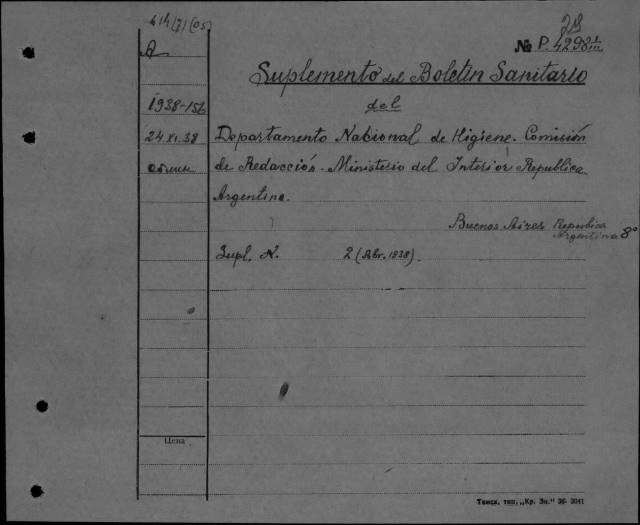 614(7)(05)
73
A
№ P. 4298 I/III
Suplemento del Boletin Sanitario
del
1938-156
24 XI.38
Departamento Nacional de Higiene. Comisión
обмен
de Redacción. Ministerio del Interior Republica
Argentina.
Buenos Aires Republica
Argentina 8°
Supl. N. 2 (Abr. 1938).
Цена
Томск. тип. „Кр. Зн.“ 36- 3041